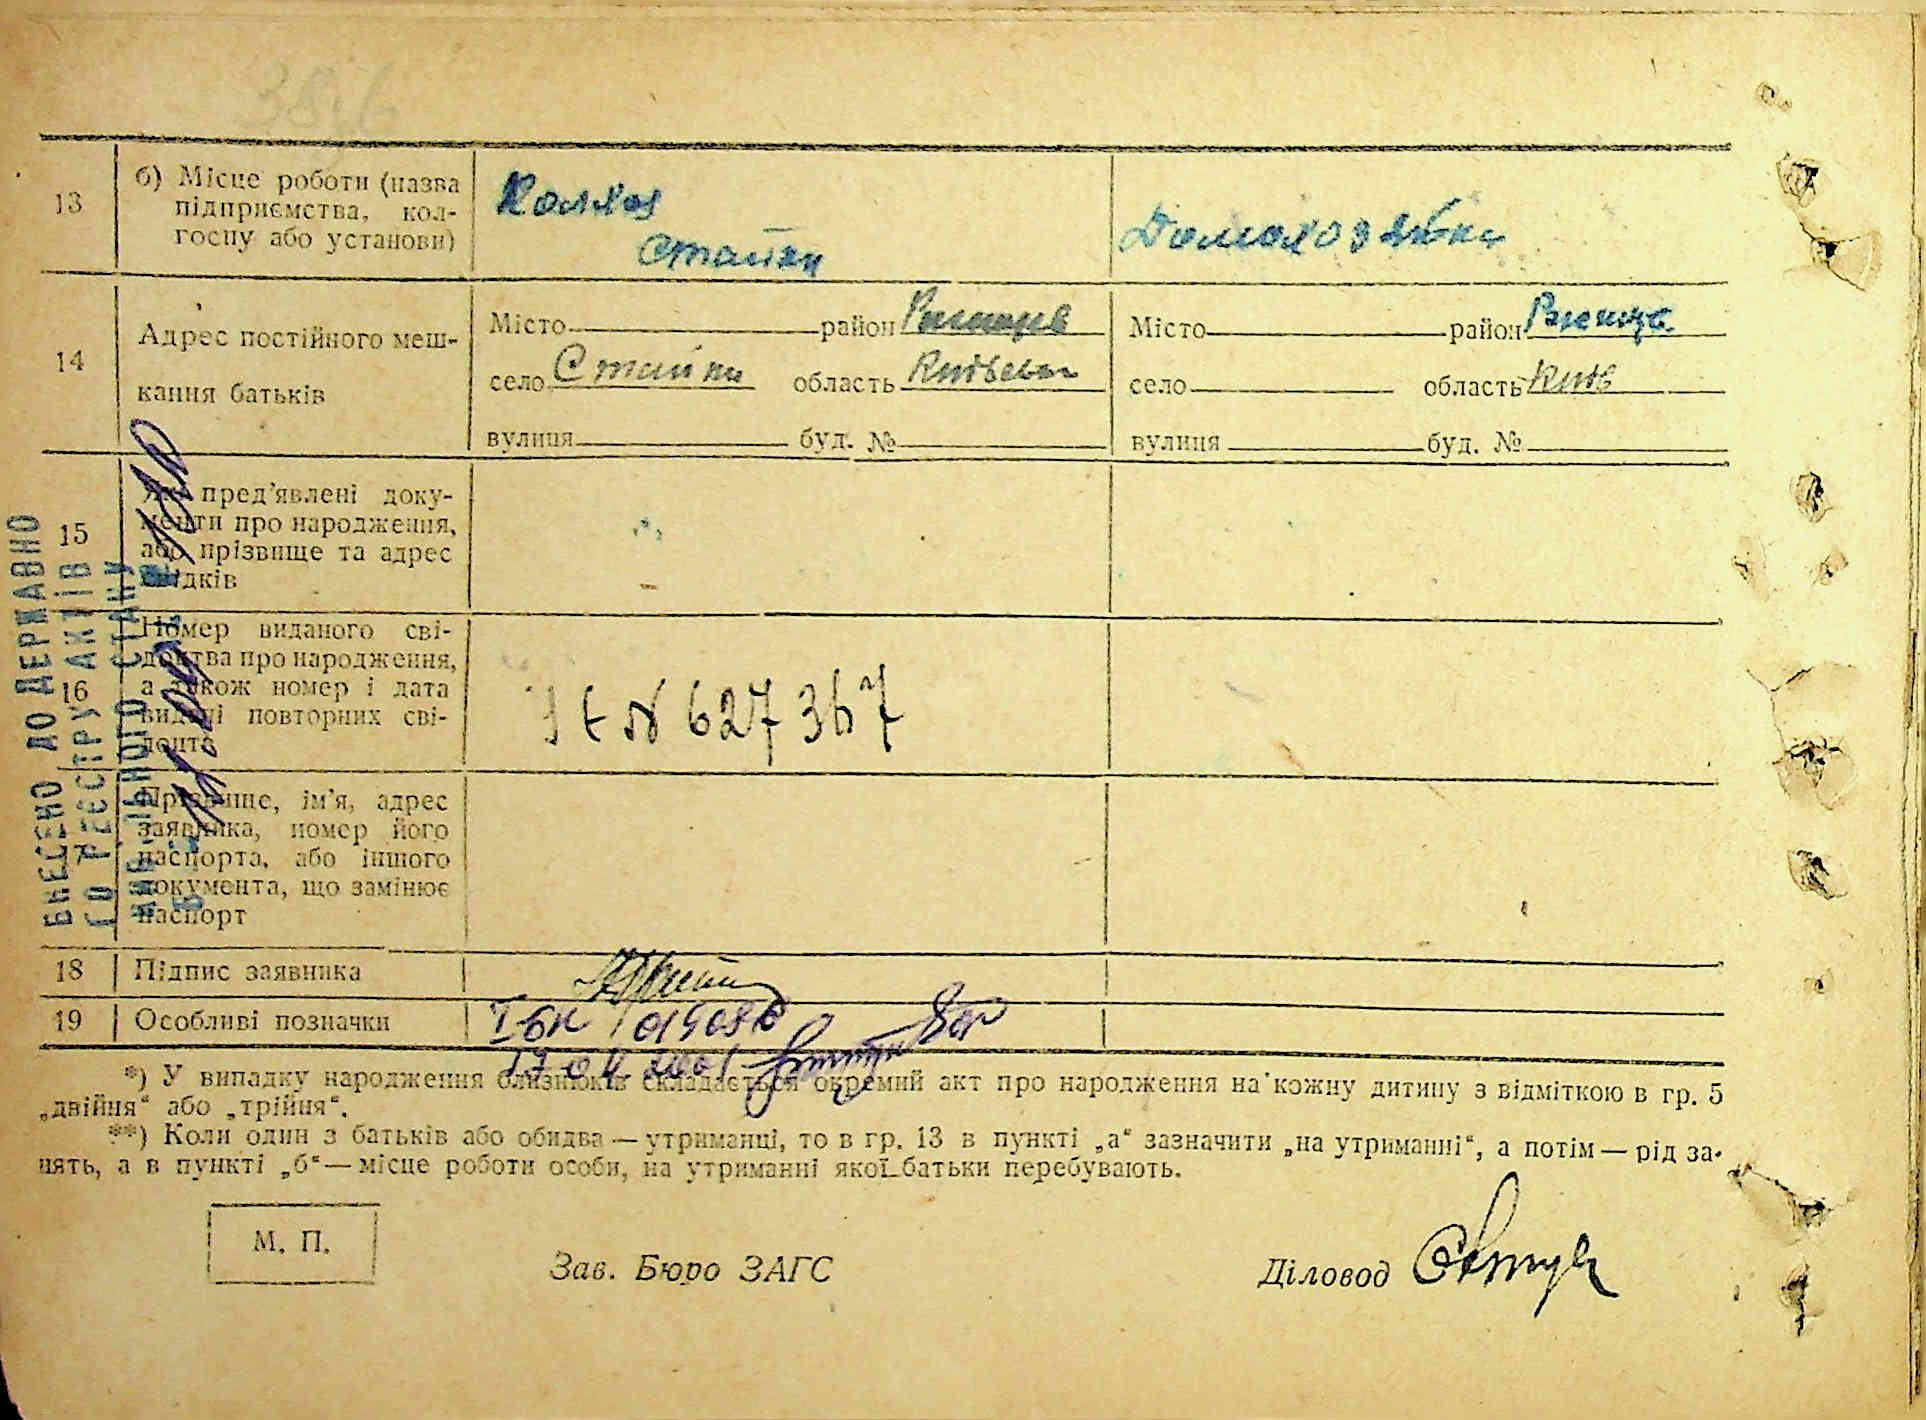 13
б) Місце роботи (назва
підприємства, кол-
госпу або установи)
Колхоз
Стайки
Домохозяйка
14
Адрес постійного меш-
кання батьків
Місто район Ржищев
село Стайки область Київськ
вулиця буд. №
Місто район Ржищев
село область Київ
вулиця буд. №
15
Які пред'явлені доку-
менти про народження,
або прізвище та адрес
свідків
16
Номер виданого сві-
доцтва про народження,
а також номер і дата
видачі повторних сві-
доцтв
627367
17
Прізвище, ім'я, адрес
заявника, номер його
паспорта, або іншого
документа, що замінює
паспорт
18 Підпис заявника
19 Особливі позначки
І-БК 015080
17 04 2001
*) У випадку народження близнюків складається окремий акт про народження на кожну дитину з відміткою в гр. 5
„двійня“ або „трійня“.
**) Коли один з батьків або обидва — утриманці, то в гр. 13 в пункті „а“ зазначити „на утриманні“, а потім — рід за-
нять, а в пункті „б“ — місце роботи особи, на утриманні якої батьки перебувають.
М. П.
Зав. Бюро ЗАГС
Діловод
ВНЕСЕНО ДО ДЕРЖАВНО
ГО РЕЄСТРУ АКТІВ
ЦИВІЛЬНОГО СТАНУ